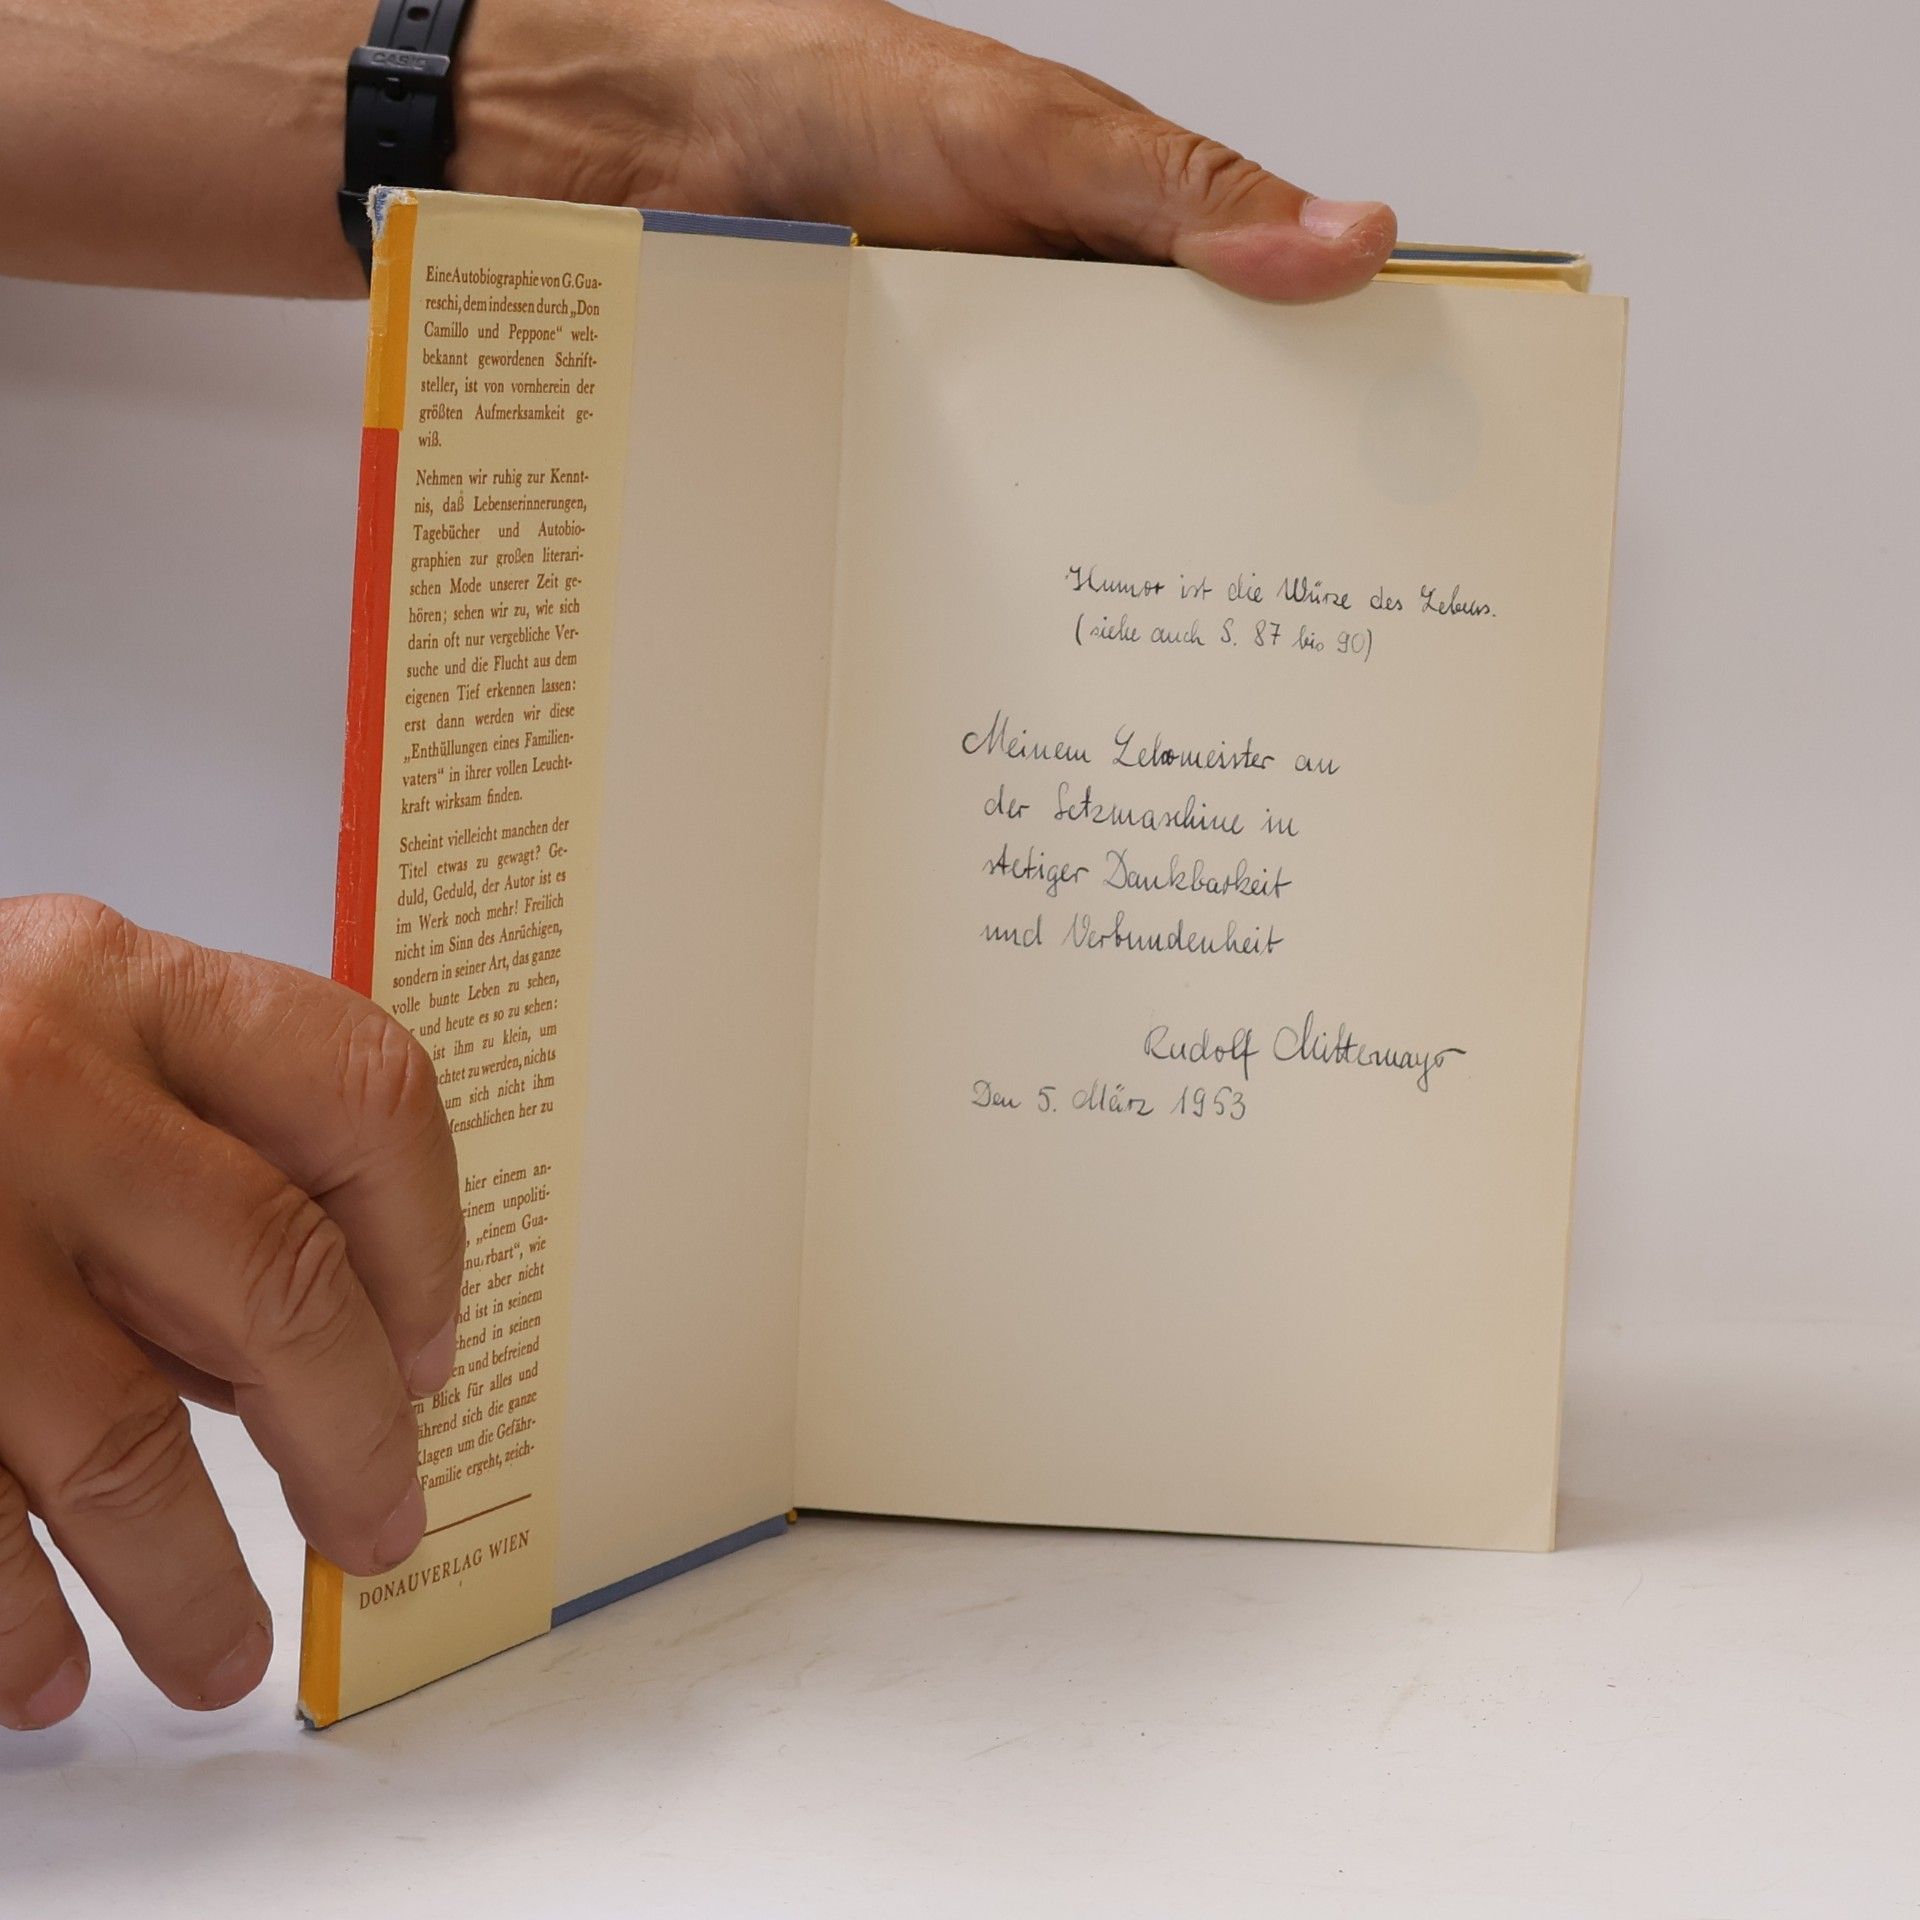 CASIO
Eine Autobiographie von G. Gua-
reschi, dem indessen durch „Don
Camillo und Peppone“ welt-
bekannt gewordenen Schrift-
steller, ist von vornherein der
größten Aufmerksamkeit ge-
wiß.
Nehmen wir ruhig zur Kennt-
nis, daß Lebenserinnerungen,
Tagebücher und Autobio-
graphien zur großen literari-
schen Mode unserer Zeit ge-
hören; sehen wir zu, wie sich
darin oft nur vergebliche Ver-
suche und die Flucht aus dem
eigenen Tief erkennen lassen:
erst dann werden wir diese
„Enthüllungen eines Familien-
vaters“ in ihrer vollen Leucht-
kraft wirksam finden.
Scheint vielleicht manchen der
Titel etwas zu gewagt? Ge-
duld, Geduld, der Autor ist es
im Werk noch mehr! Freilich
nicht im Sinn des Anrüchigen,
sondern in seiner Art, das ganze
volle bunte Leben zu sehen,
und heute es so zu sehen:
ist ihm zu klein, um
achtet zu werden, nichts
um sich nicht ihm
Menschlichen her zu
hier einem an-
einem unpoliti-
„einem Gua-
rbart“, wie
der aber nicht
nd ist in seinem
chend in seinen
en und befreiend
Blick für alles und
ährend sich die ganze
Klagen um die Gefähr-
Familie ergeht, zeich-
DONAUVERLAG WIEN
Humor ist die Würze des Lebens.
(siehe auch S. 87 bis 90)
Meinem Lehrmeister an
der Setzmaschine in
stetiger Dankbarkeit
und Verbundenheit
Rudolf Mittermayr
Den 5. März 1953